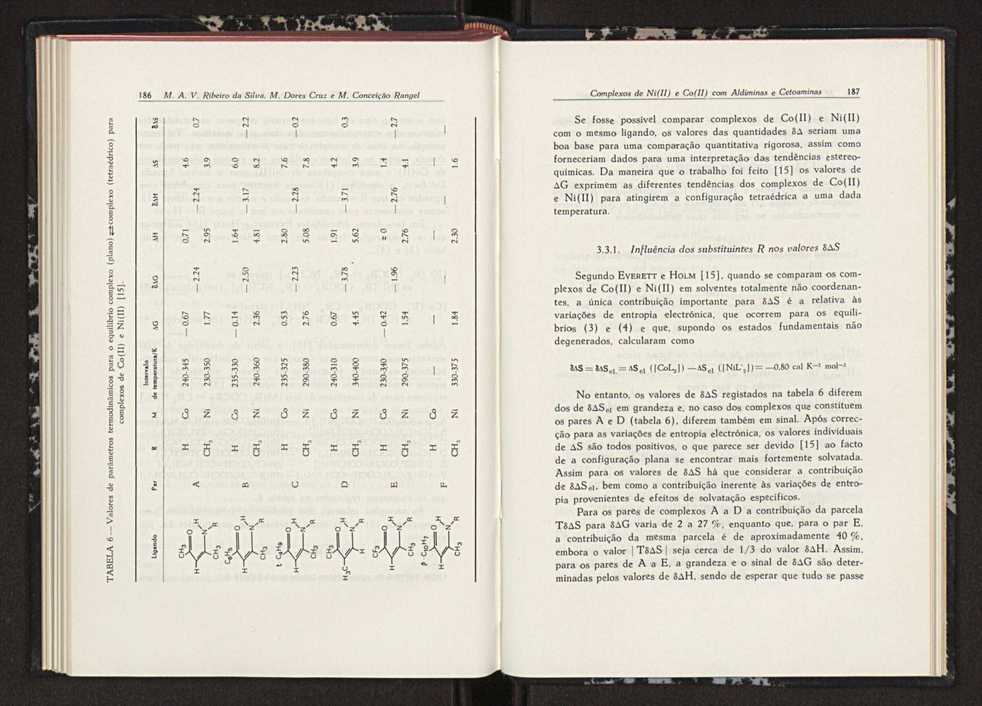 186 M. A. V. Ribeiro da Silva, M. Dores Cruz e M. Conceição Rangel
TABELA 6 — Valores de parâmetros termodinâmicos para o equilíbrio complexo (plano) ⇄ complexo (tetraédrico) para
complexos de Co(II) e Ni(II) [15].
Ligando Par R M Intervalo de temperatura/K ΔG δΔG ΔH δΔH ΔS δΔS
CH₃ O H N R CH₃ H A H Co 240-345 —0.67 —2.24 0.71 —2.24 4.6 0.7
CH₃ Ni 230-350 1.77 2.95 3.9
C₆H₅ O H N R CH₃ H B H Co 235-330 —0.14 —2.50 1.64 —3.17 6.0 —2.2
CH₃ Ni 240-360 2.36 4.81 8.2
t C₄H₉ O H N R CH₃ H C H Co 235-325 0.53 —2.23 2.80 —2.28 7.6 —0.2
CH₃ Ni 290-380 2.76 5.08 7.8
CH₃ O H N R H H₃C D H Co 240-310 0.67 —3.78 1.91 —3.71 4.2 0.3
CH₃ Ni 340-400 4.45 5.62 3.9
CF₃ O H N R CH₃ H E H Co 230-340 —0.42 —1.96 ± 0 —2.76 1.4 —2.7
CH₃ Ni 290-375 1.54 2.76 4.1
O H N R CH₃ H F H Co — — — — — — —
CH₃ Ni 330-375 1.84 2.30 1.6
Complexos de Ni(II) e Co(II) com Aldiminas e Cetoaminas 187
Se fosse possível comparar complexos de Co(II) e Ni(II)
com o mesmo ligando, os valores das quantidades δΔ seriam uma
boa base para uma comparação quantitativa rigorosa, assim como
forneceriam dados para uma interpretação das tendências estereo-
químicas. Da maneira que o trabalho foi feito [15] os valores de
ΔG exprimem as diferentes tendências dos complexos de Co(II)
e Ni(II) para atingirem a configuração tetraédrica a uma dada
temperatura.
3.3.1. Influência dos substituintes R nos valores δΔS
Segundo EVERETT e HOLM [15], quando se comparam os com-
plexos de Co(II) e Ni(II) em solventes totalmente não coordenan-
tes, a única contribuição importante para δΔS é a relativa às
variações de entropia electrónica, que ocorrem para os equilí-
brios (3) e (4) e que, supondo os estados fundamentais não
degenerados, calcularam como
δΔS = δΔSel = ΔSel ([CoL₂]) —ΔSel ([NiL'₂]) = —0.80 cal K⁻¹ mol⁻¹
No entanto, os valores de δΔS registados na tabela 6 diferem
dos de δΔSel em grandeza e, no caso dos complexos que constituem
os pares A e D (tabela 6), diferem também em sinal. Após correc-
ção para as variações de entropia electrónica, os valores individuais
de ΔS são todos positivos, o que parece ser devido [15] ao facto
de a configuração plana se encontrar mais fortemente solvatada.
Assim para os valores de δΔS há que considerar a contribuição
de δΔSel, bem como a contribuição inerente às variações de entro-
pia provenientes de efeitos de solvatação específicos.
Para os pares de complexos A a D a contribuição da parcela
TδΔS para δΔG varia de 2 a 27 %, enquanto que, para o par E,
a contribuição da mesma parcela é de aproximadamente 40 %,
embora o valor | TδΔS | seja cerca de 1/3 do valor δΔH. Assim,
para os pares de A a E, a grandeza e o sinal de δΔG são deter-
minadas pelos valores de δΔH, sendo de esperar que tudo se passe